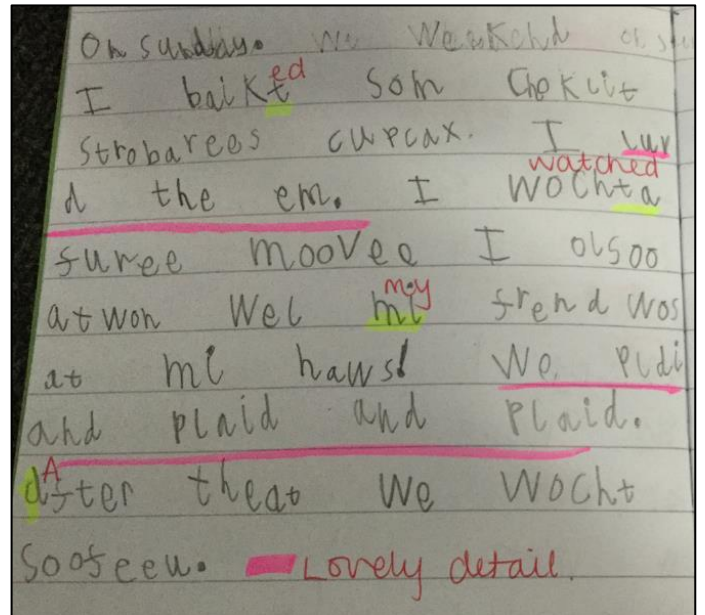 On sunday. We Weakend
ed
I baikt som Choklit
Strobarees cupcax. I luv
watched
d the em. I Wochta
furee moovee I olsoo
my
at won Wel mi frend wos
at mi haws! We pldi
and plaid and plaid.
A
after theat We Wocht
Soofeeu. Lovely detail.